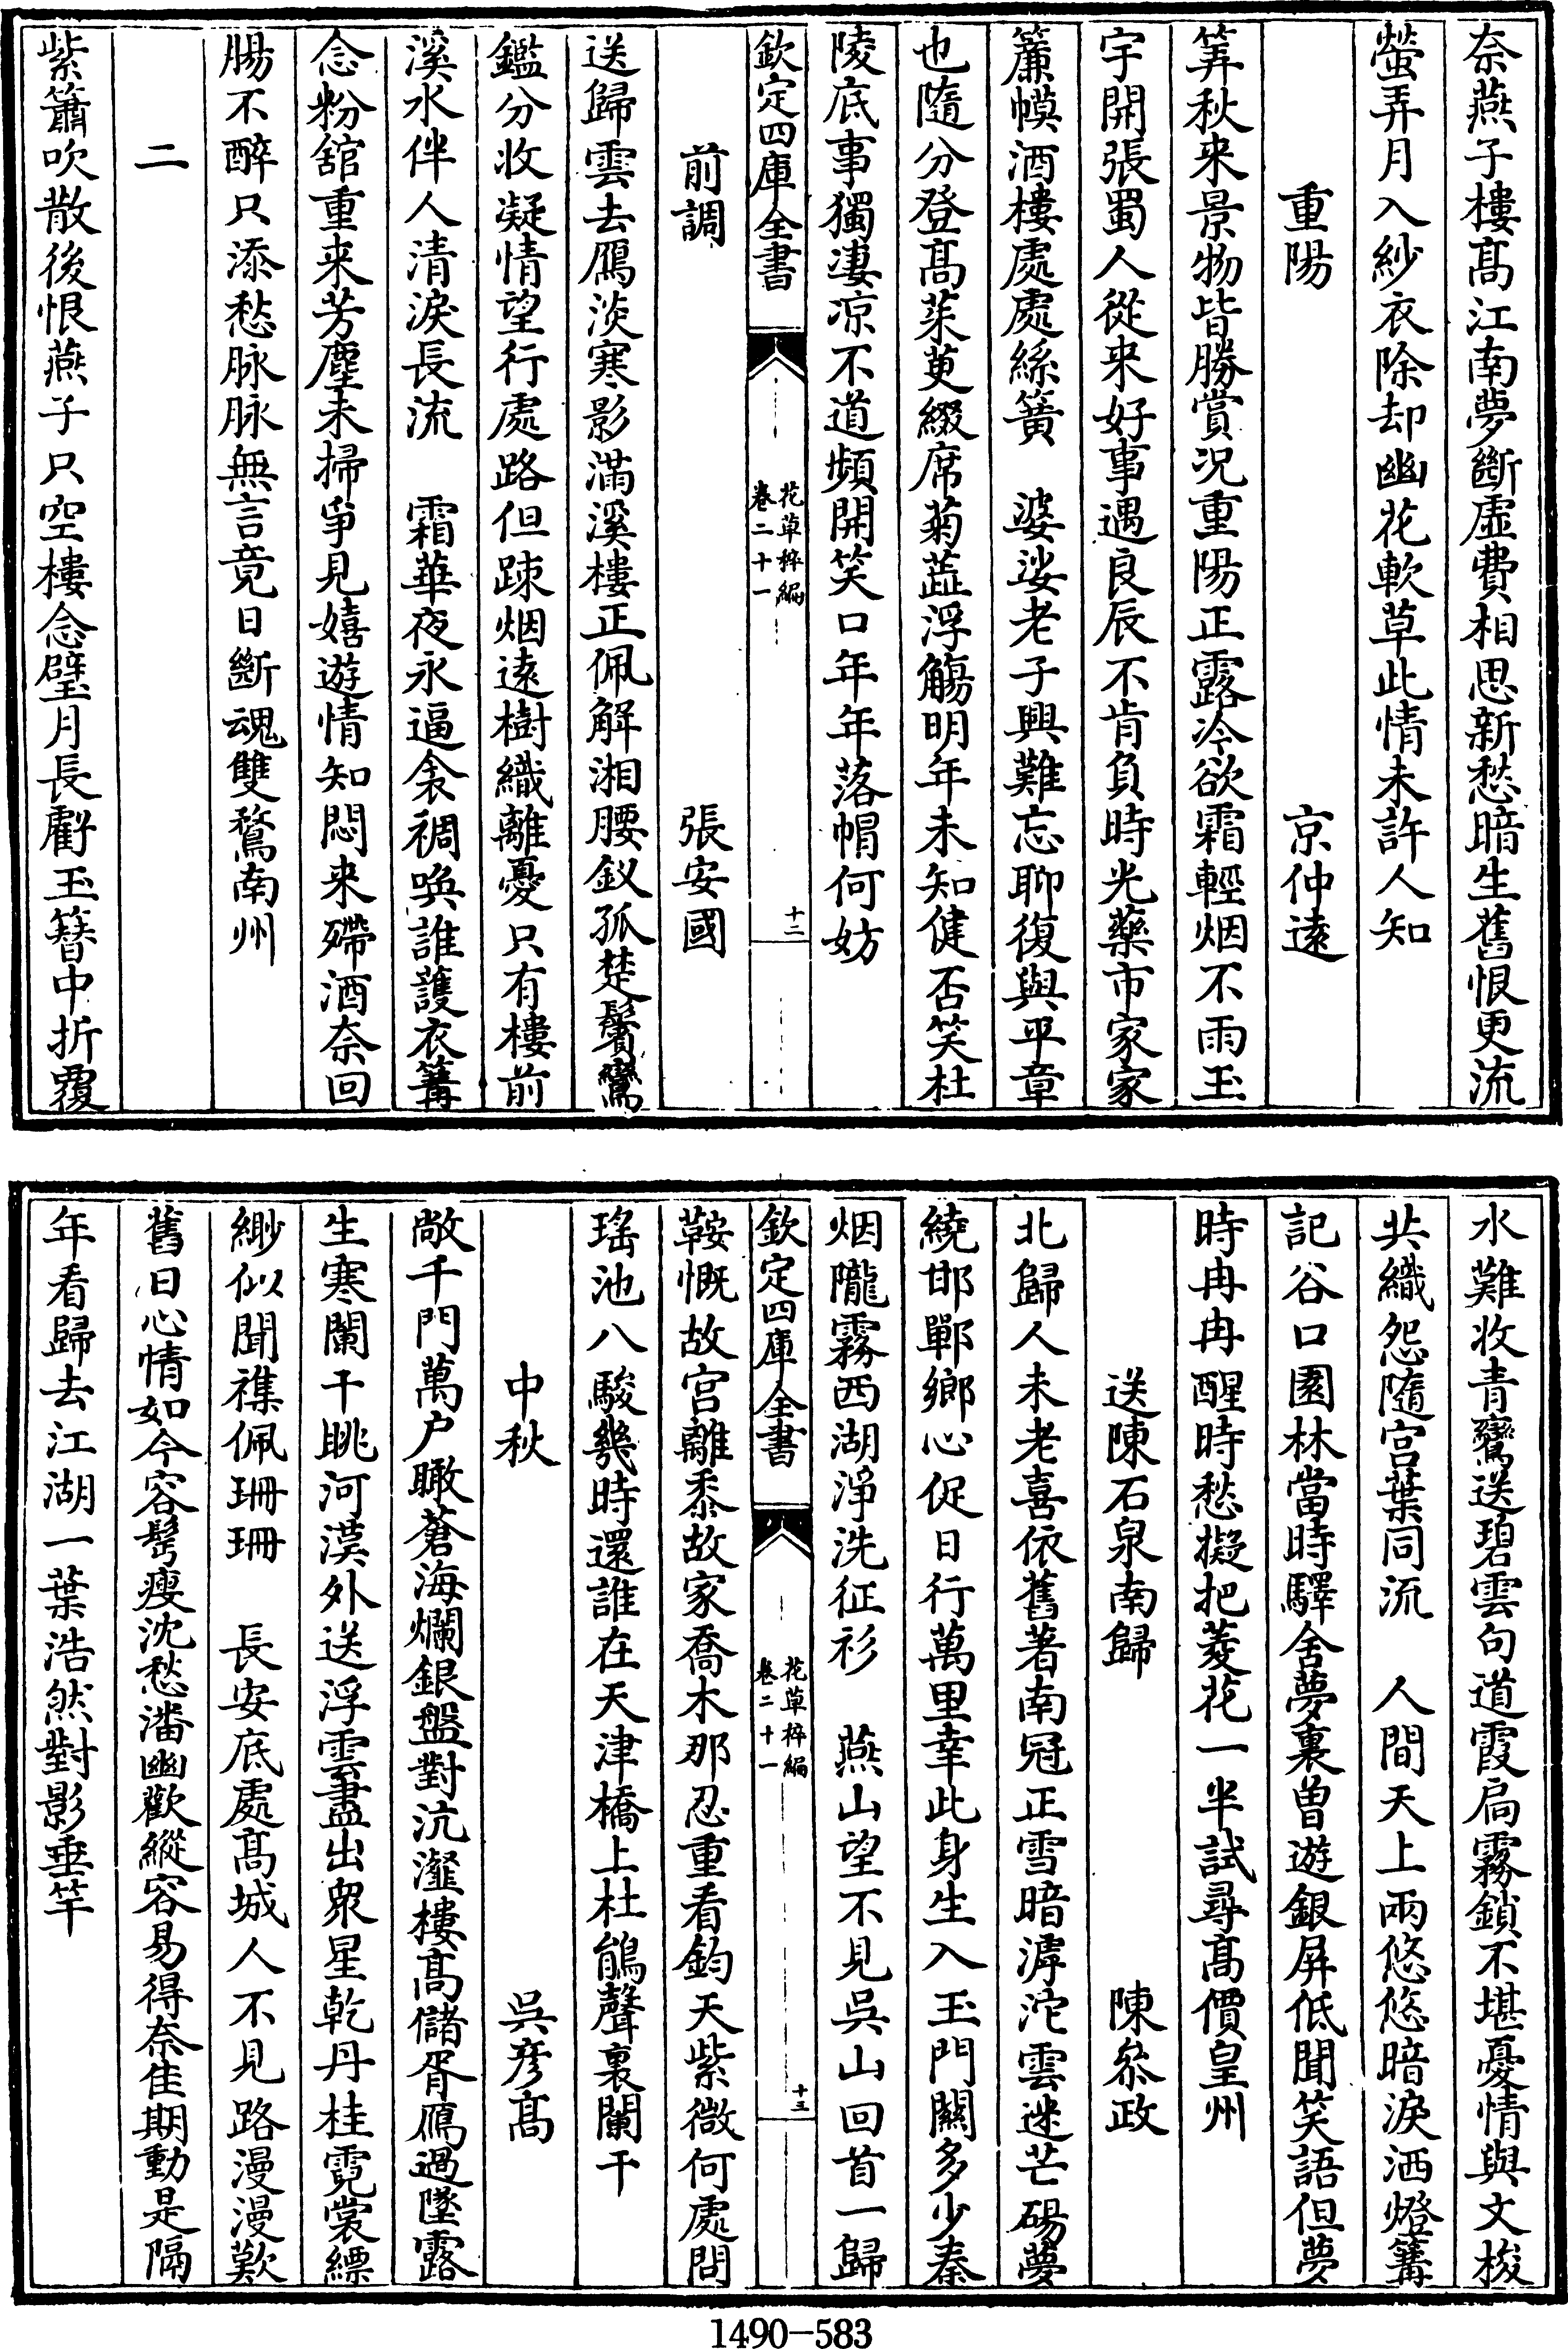 奈燕子樓髙江南夢斷虛費相思新愁暗生舊恨更流
螢弄月入紗衣除却幽花軟草此情未許人知
重陽 京仲逺
筭秋来景物皆勝賞况重陽正露冷欲霜輕烟不雨玉
宇開張蜀人從来好事遇良辰不肯負時光藥市家家
簾幙酒樓處處絲簧 婆娑老子興難忘聊復與平章
也隨分登髙茱萸綴席菊蕋浮觴明年未知健否笑杜
陵底事獨凄凉不道頻開笑口年年落帽何妨
欽定四庫全書 花草稡編 卷二十一 十二
前調 張安國
送歸雲去鴈淡寒影滿溪樓正佩解湘腰釵孤楚鬢鸞
鑑分收凝情望行處路但踈烟逺樹織離憂只有樓前
溪水伴人清淚長流 霜華夜永逼衾裯喚誰䕶衣篝
念粉舘重来芳塵未掃爭見嬉遊情知悶来殢酒奈回
腸不醉只添愁脉脉無言竟日斷魂雙鶩南州
二
紫簫吹散後恨燕子只空樓念璧月長虧玉簪中折覆
水難收青鸞送碧雲句道霞扃霧鎖不堪憂情與文梭
共織怨隨宫葉同流 人間天上兩悠悠暗淚洒燈篝
記谷口園林當時驛舍夢裏曾遊銀屏低聞笑語但夢
時冉冉醒時愁擬把菱花一半試尋髙價皇州
送陳石泉南歸 陳叅政
北歸人未老喜依舊著南冠正雪暗滹沱雲迷芒碭夢
繞邯鄲鄉心促日行萬里幸此身生入玉門闗多少秦
烟隴霧西湖淨洗征衫 燕山望不見吳山回首一歸
鞍慨故宫離黍故家喬木那忍重看鈞天紫微何處問
瑶池八駿幾時還誰在天津橋上杜鵑聲裏闌干
欽定四庫全書 花草稡編 卷二十一 十三
中秋 吳彦髙
敞千門萬户瞰蒼海爛銀盤對沆瀣樓髙儲胥鴈過墜露
生寒闌干眺河漢外送浮雲盡出衆星乾丹桂霓裳縹
緲似聞襍佩珊珊 長安底處髙城人不見路漫漫歎
舊日心情如今容髩瘦沈愁潘幽歡縱容易得奈佳期動是隔
年看歸去江湖一葉浩然對影垂竿
1490-583